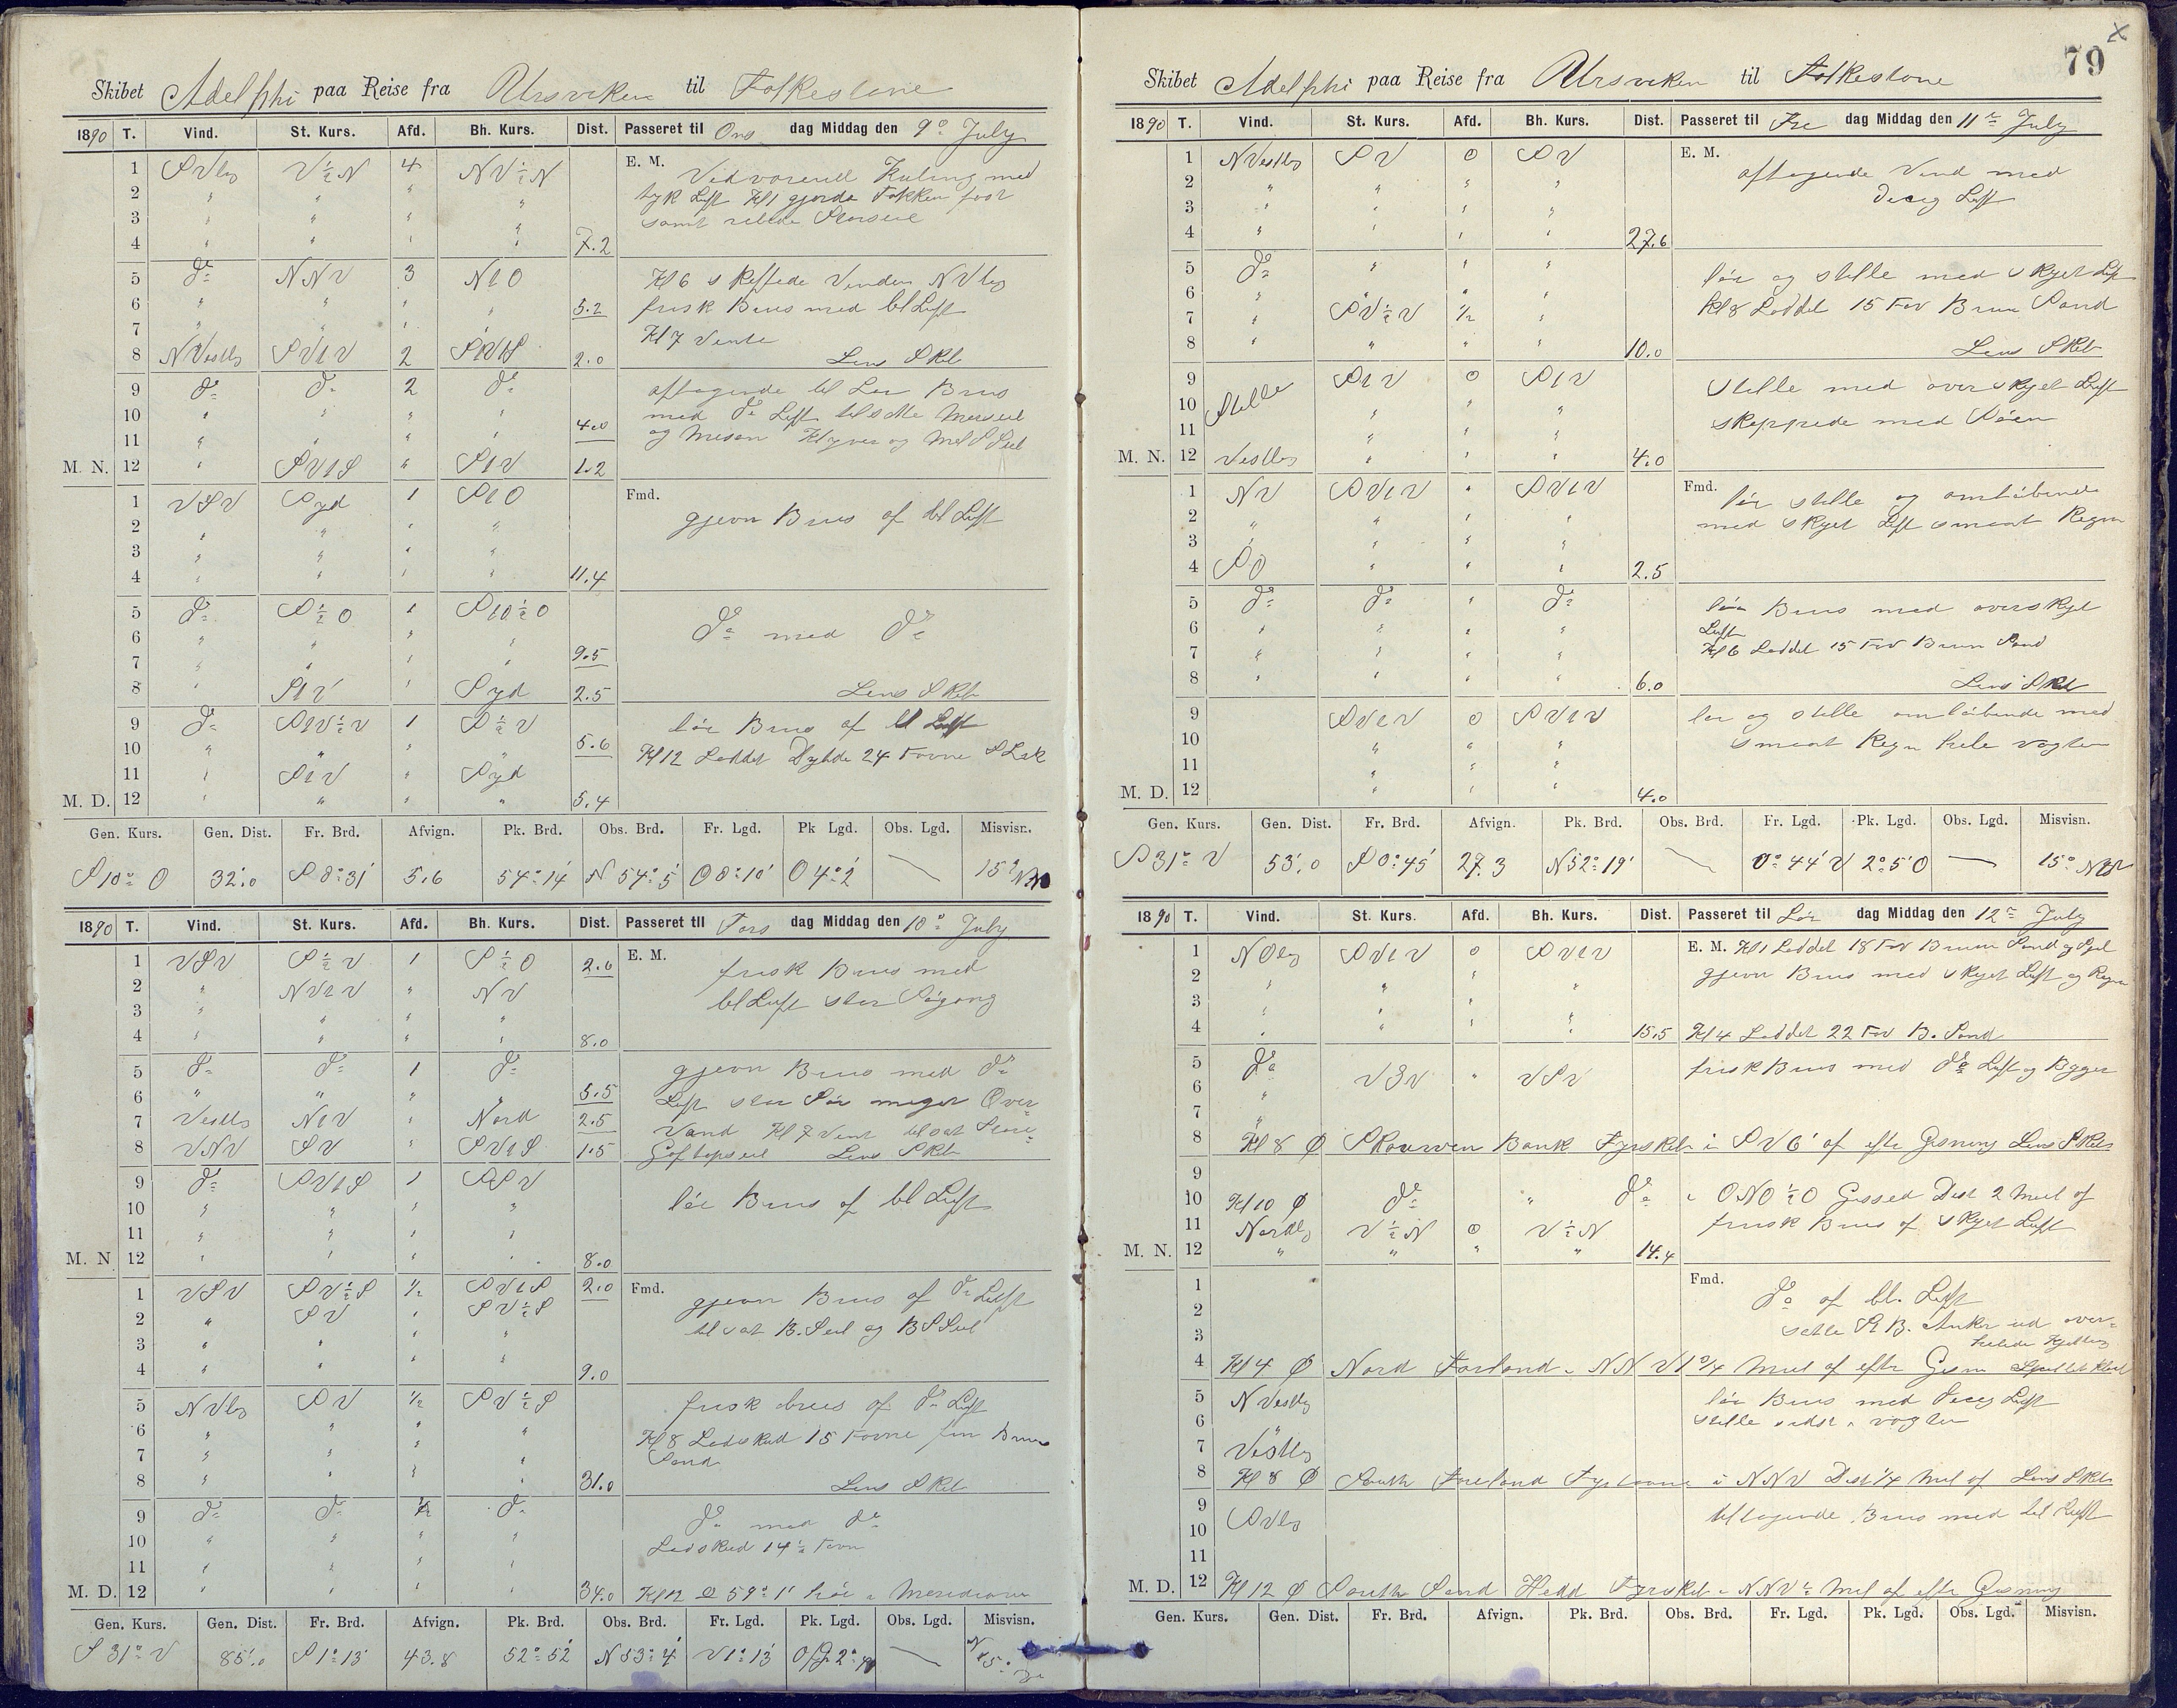 Skibet Adelphi paa Reise fra Ursviken til Folkestone
1890 T. Vind. St. Kurs. Afd. Bh. Kurs. Dist. Passeret til Ons dag Middag den 9º July
1 SVlig V½N 4 NV½N E. M. Vedvarend Kuling med
2 " " " " tyk Luft Kl 1 gjorde Fokken fast
3 " " " " samt rebede Storseil
4 " " " " 7.2
5 dº NNV 3 NtO Kl 6 skiftede Vinden NVlig
6 " " " " 5.2 frisk Bris med bl Luft
7 " " " " Kl 7 Vente
8 NVestlig SVtV 2 SVtS 2.0 Lens Skib
9 dº dº 2 dº aftagende til Lør Bris
10 " " " " 4.0 med dº Luft tilsatte Merseil
11 " " " og Mesan Klyver og Mel S Seil
M. N. 12 " SVtS " StV 1.2
1 VSV Syd 1 StO Fmd.
2 " " " " gjevn Bris af bl Luft
3 " " " "
4 " " " " 11.4
5 dº S½O 1 StO½O
6 " " " " dº med dº
7 " " " " 9.5
8 " StV " Syd 2.5 Lens Skib
9 dº StV½V 1 S½V lør Bris af bl Luft
10 " " " " 5.6 Kl 12 Loddet Dybde 24 Favne S Lek
11 " StV " Syd
M. D. 12 " " " " 5.4
Gen. Kurs. Gen. Dist. Fr. Brd. Afvign. Pk. Brd. Obs. Brd. Fr. Lgd. Pk Lgd. Obs. Lgd. Misvisn.
S10º O 32.0 S 0º31' 5.6 54º14' N 54º5' O 0º10' O 4º2' — 15º
1890 T. Vind. St. Kurs. Afd. Bh. Kurs. Dist. Passeret til Tors dag Middag den 10º July
1 VSV S½V 1 S½O 2.6 E. M. frisk Bris med
2 " NVtV " NV bl Luft stor Søgang
3 " " " "
4 " " " " 8.0
5 dº dº 1 dº gjevn Bris med dº
6 " " " " 5.5 Luft stor Sør meget Over-
7 Vestlig NtV " Nord 2.5 Vand Kl 7 Vent tilsat Store
8 VNV SV " SVtS 1.5 Gaftopseil Lens Skib
9 dº SVtS 1 SSV
10 " " " " lør Bris af bl Luft
11 " " " "
M. N. 12 " " " " 8.0
1 VSV SV½S ½ SVtS 2.0 Fmd. gjevn Bris af dº Luft
2 " SV " SV½S tilsat B. Seil og B S Seil
3 " " " "
4 " " " " 9.0
5 NVlig SV ½ SV½S frisk bris af dº Luft
6 " " " " Kl 8 Lodskud 15 Favne fin Bruun
7 " " " " Sand
8 " " " " 31.0 Lens Skib
9 dº dº ½ dº dº med dº
10 " " " " Lodskud 14½ Favn
11 " " " "
M. D. 12 " " " " 34.0 Kl 12 59º1' høi i Meridianen
Gen. Kurs. Gen. Dist. Fr. Brd. Afvign. Pk. Brd. Obs. Brd. Fr. Lgd. Pk. Lgd. Obs. Lgd. Misvisn.
S 31º V 85.0 S 1º13' 43.8 52º52' N 53º4' V 1º13' —
79
Skibet Adelphi paa Reise fra Ursviken til Folkestone
1890 T. Vind. St. Kurs. Afd. Bh. Kurs. Dist. Passeret til Fre dag Middag den 11te July
1 NVestlig SV 0 SV E. M. aftagende Vind med
2 " " " " Diesig Luft
3 " " " "
4 " " " " 27.6
5 dº " " " lør og stille med skyet Luft
6 " " " " Kl 8 Loddet 15 Fav Brun Sand
7 " SV½V ½ "
8 " " " " 10.0 Lens Skib
9 StV 0 StV Stille med overskyet Luft
10 Stille " " " skeppede med Søen
11 " " "
M. N. 12 Vestlig " " " 4.0
1 NV SVtV " SVtV Fmd. lør stille og omløbende
2 " " " " med skyet Luft smaat Regn
3 " " " "
4 SO " " " 2.5
5 dº dº " dº lør Bris med overskyet
6 " " " " Luft
7 " " " " Kl 6 Loddet 15 Fav Brun Sand
8 " " " " 6.0 Lens Skib
9 SVtV 0 SVtV lør og stille omløbende med
10 " " " smaat Regn hele vagten
11 " " "
M. D. 12 " " " 4.0
Gen. Kurs. Gen. Dist. Fr. Brd. Afvign. Pk. Brd. Obs. Brd. Fr. Lgd. Pk. Lgd. Obs. Lgd. Misvisn.
S 31º V 53.0 S 0º45' 27.3 N 52º19' — 0º44' V 2º5 O — 15º
1890 T. Vind. St. Kurs. Afd. Bh. Kurs. Dist. Passeret til Lør dag Middag den 12te July
1 NOlig SVtV 0 SVtV E. M. Kl 1 Loddet 18 Fav Bruun Sand og
2 " " " " gjevn Bris med skyet Luft og Regn
3 " " " "
4 " " " " 15.5 Kl 4 Loddet 22 Fav B. Sand
5 dº VSV " VSV frisk Bris med dº Luft og Byger
6 "
7 "
8 Kl 8 Ø Skouwen Bank Fyrskib i SV 6' af efter Gisning Lens Skib
9
10 Kl 10 Ø dº " dº i ONO½O Gissed Dist 2 Miil af
11 Nordlig V½N 0 V½N frisk Bris af skyet Luft
M. N. 12 " " " " 14.4
1 Fmd. dº af bl. Luft
2 satte St B. Anker ud over-
3 Kjetting
4 Kl 4 Ø Nord Forland i NNV 1¾ Miil af efter Gisn
5 NVestlig lør Bris med Diesig Luft
6 " stille sidst i vagten
7 Vestlig
8 Kl 8 Ø South Forland Fyrtaarn i NNV Dist ¼ Miil af Lens Skib
9 SVlig tiltagende Bris med bl Luft
10
11
M. D. 12 Kl 12 Ø South Sand Hedd Fyrskib i NNV ½ Miil af efter Gisning
Gen. Kurs. Gen. Dist. Fr. Brd. Afvign. Pk. Brd. Obs. Brd. Fr. Lgd. Pk. Lgd. Obs. Lgd. Misvisn.